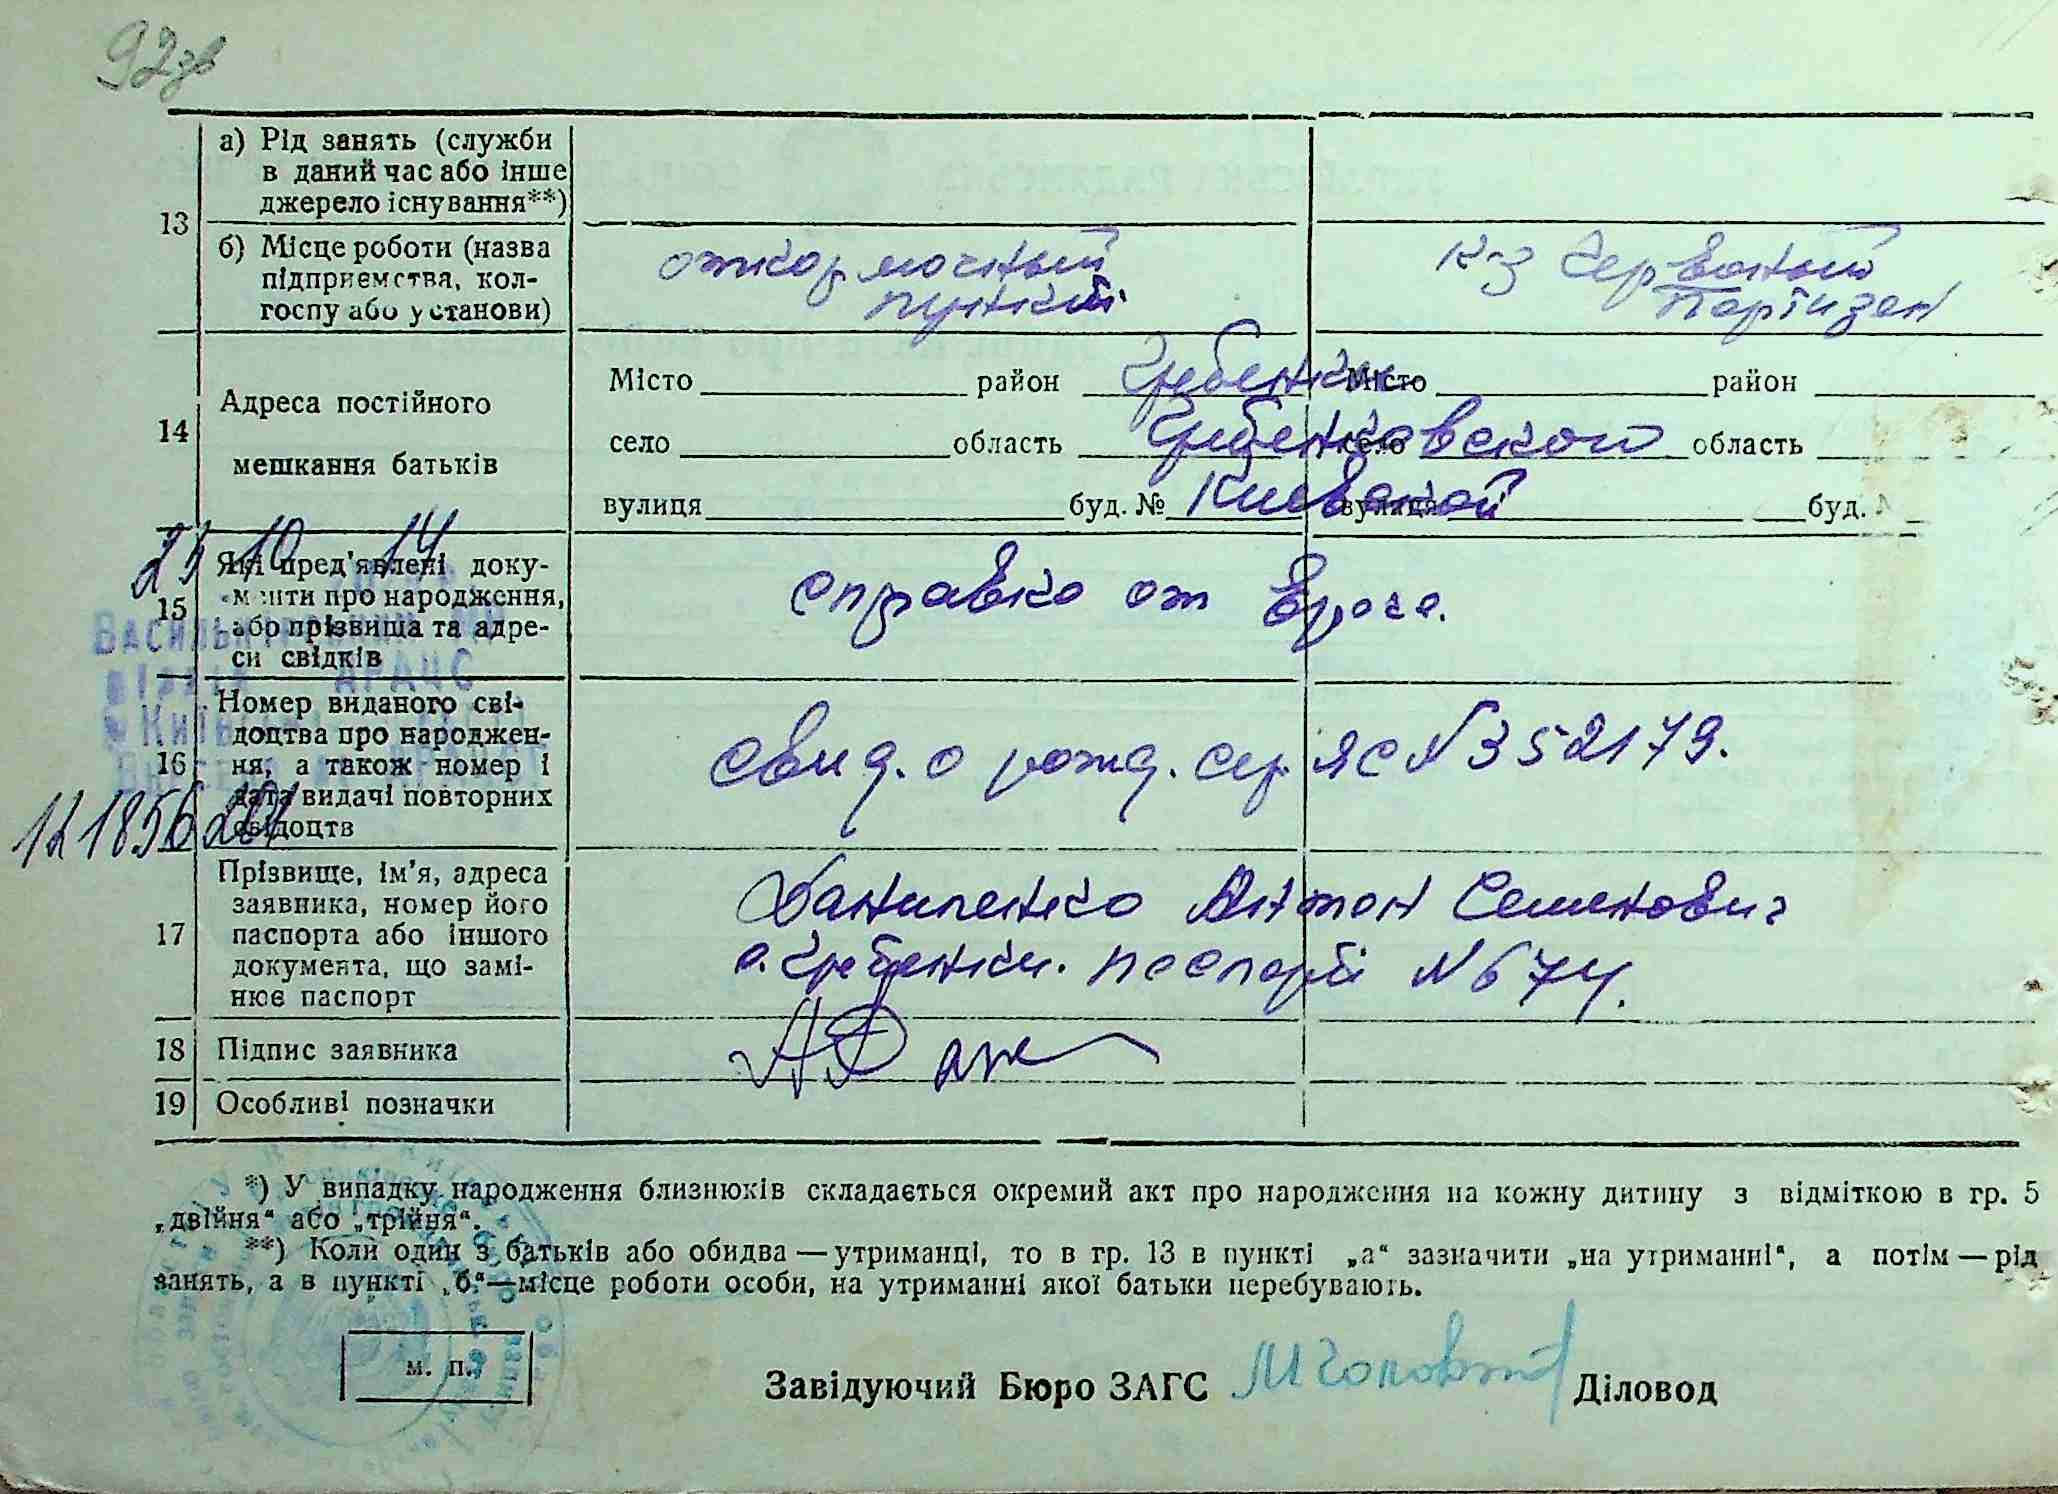 92зв
13
а) Рід занять (служби
в даний час або інше
джерело існування**)
б) Місце роботи (назва
підприємства, кол-
госпу або установи)
откормочный
пункт.
к-з Червоный
Партизан
14
Адреса постійного
мешкання батьків
Місто район Гребенки Місто район
село область Гребенковского село область
вулиця буд. № Киевской вулиця буд.
21 10 14
15
Які пред'явлені доку-
менти про народження,
або прізвища та адре-
си свідків
справка от врача.
16
Номер виданого сві-
доцтва про народжен-
ня, а також номер і
дата видачі повторних
свідоцтв
Васильківський
ДРАЦС
свид. о рожд. сер ЯС № 352179.
17
Прізвище, ім'я, адреса
заявника, номер його
паспорта або іншого
документа, що замі-
нює паспорт
Даниленко Антон Семенович
с. Гребенки. паспорт № 674.
18 Підпис заявника
19 Особливі позначки
*) У випадку народження близнюків складається окремий акт про народження на кожну дитину з відміткою в гр. 5
„двійня“ або „трійня“.
**) Коли один з батьків або обидва — утриманці, то в гр. 13 в пункті „а“ зазначити „на утриманні“, а потім — рід
занять, а в пункті „б“—місце роботи особи, на утриманні якої батьки перебувають.
м. п.
Завідуючий Бюро ЗАГС Діловод